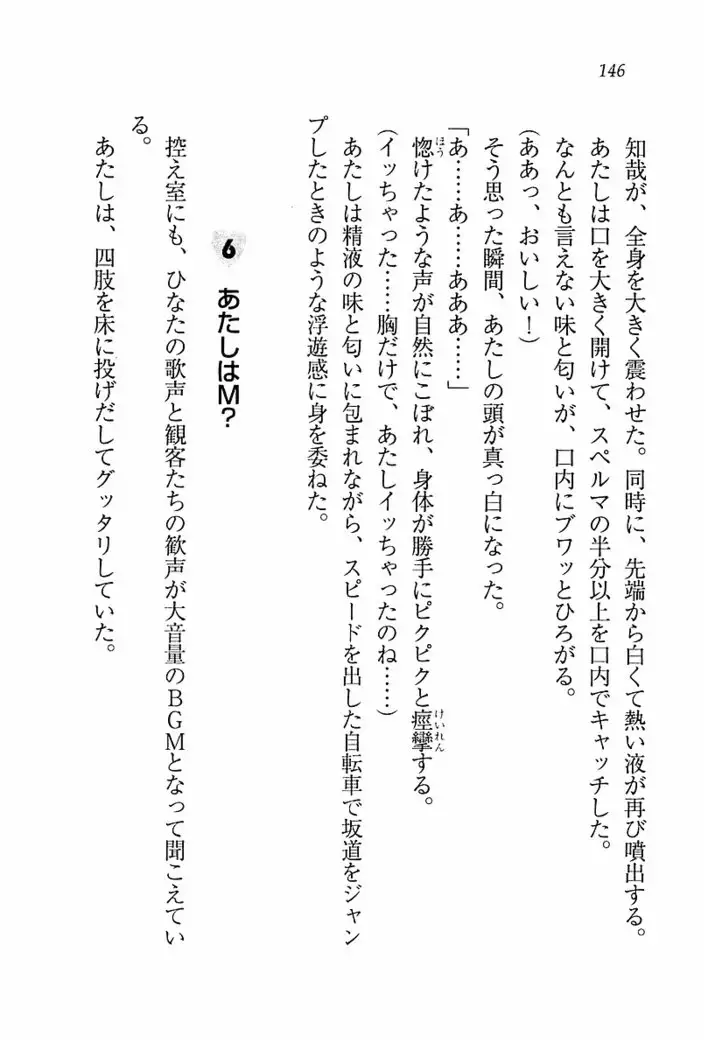 146
知哉が、全身を大きく震わせた。同時に、先端から白くて熱い液が再び噴出する。
あたしは口を大きく開けて、スペルマの半分以上を口内でキャッチした。
なんとも言えない味と匂いが、口内にブワッとひろがる。
(ああっ、おいしい!)
そう思った瞬間、あたしの頭が真っ白になった。
「あ……あ……あああ……」
惚けたような声が自然にこぼれ、身体が勝手にピクピクと痙攣する。
(イッちゃった……胸だけで、あたしイッちゃったのね……)
あたしは精液の味と匂いに包まれながら、スピードを出した自転車で坂道をジャン
プしたときのような浮遊感に身を委ねた。
6 あたしはM?
控え室にも、ひなたの歌声と観客たちの歓声が大音量のBGMとなって聞こえてい
る。
あたしは、四肢を床に投げだしてグッタリしていた。